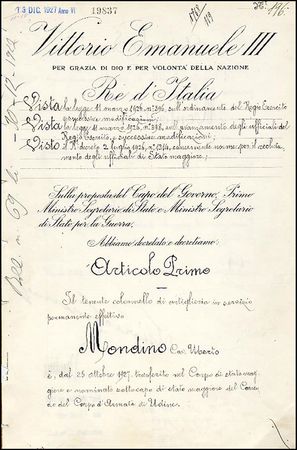 13 DIC. 1927 Anno VI
19837
Vittorio Emanuele III
PER GRAZIA DI DIO E PER VOLONTÀ DELLA NAZIONE
Re d'Italia
Vista la legge 11 marzo 1926 n° 396, sull'ordinamento del Regio Esercito
e successive modificazioni;
Vista la legge 11 marzo 1926, n° 398, sull'avanzamento degli ufficiali del
Regio Esercito, e successive modificazioni;
Visto il R° decreto 2 luglio 1926, concernente norme per il recluta
mento degli ufficiali di Stato maggiore;
Sulla proposta del Capo del Governo, Primo
Ministro Segretario di Stato e Ministro Segretario
di Stato per la Guerra;
Abbiamo decretato e decretiamo:
Articolo Primo
Il tenente colonnello di artiglieria in servizio
permanente effettivo
Mondino Cav. Uberto
è, dal 25 ottobre 1927, trasferito nel Corpo di stato mag
giore e nominato sottocapo di stato maggiore del Coman
do del Corpo d'Armata di Udine.